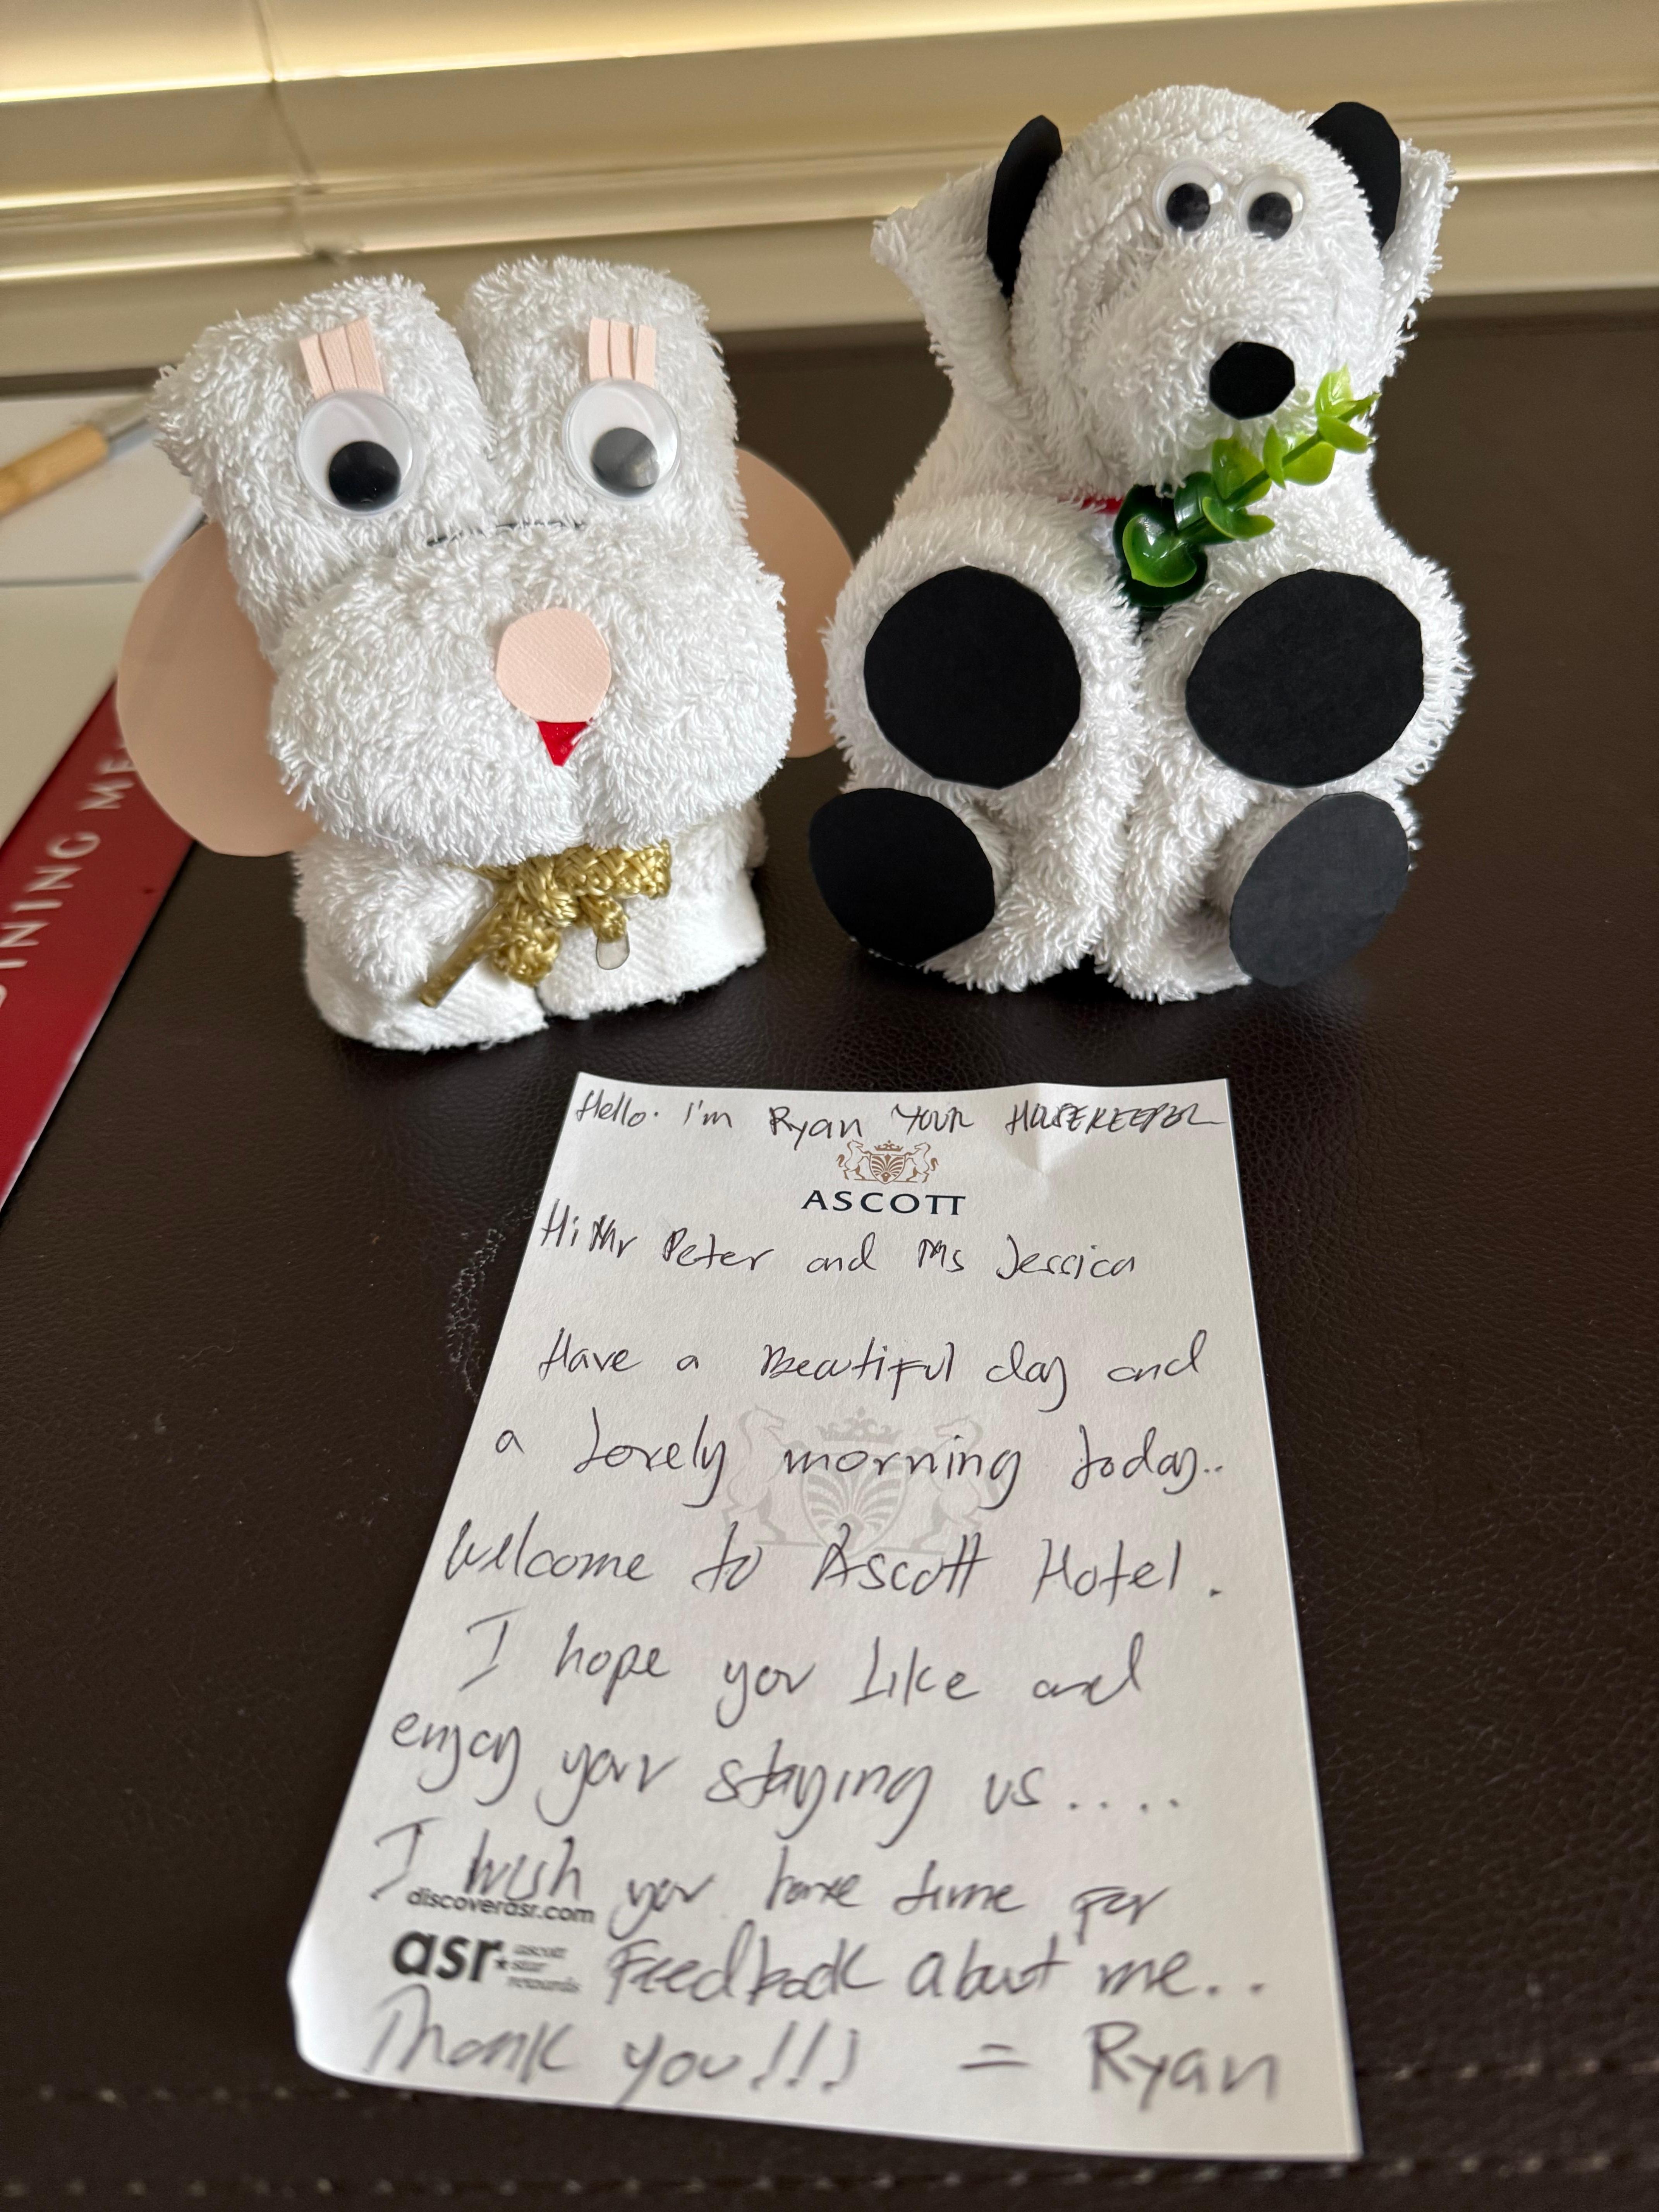 DINING ME
Hello. i'm Ryan YOUR HOUSEKEEPER
ASCOTT
Hi Mr Peter and Ms Jessica
Have a Beautiful day and
a Lovely morning today..
Welcome to Ascott Hotel.
I hope you Like and
enjoy your staying us....
I wish you have time for
discoverasr.com
asr ascott star rewards
Feedback about me..
Thank you!!! = Ryan